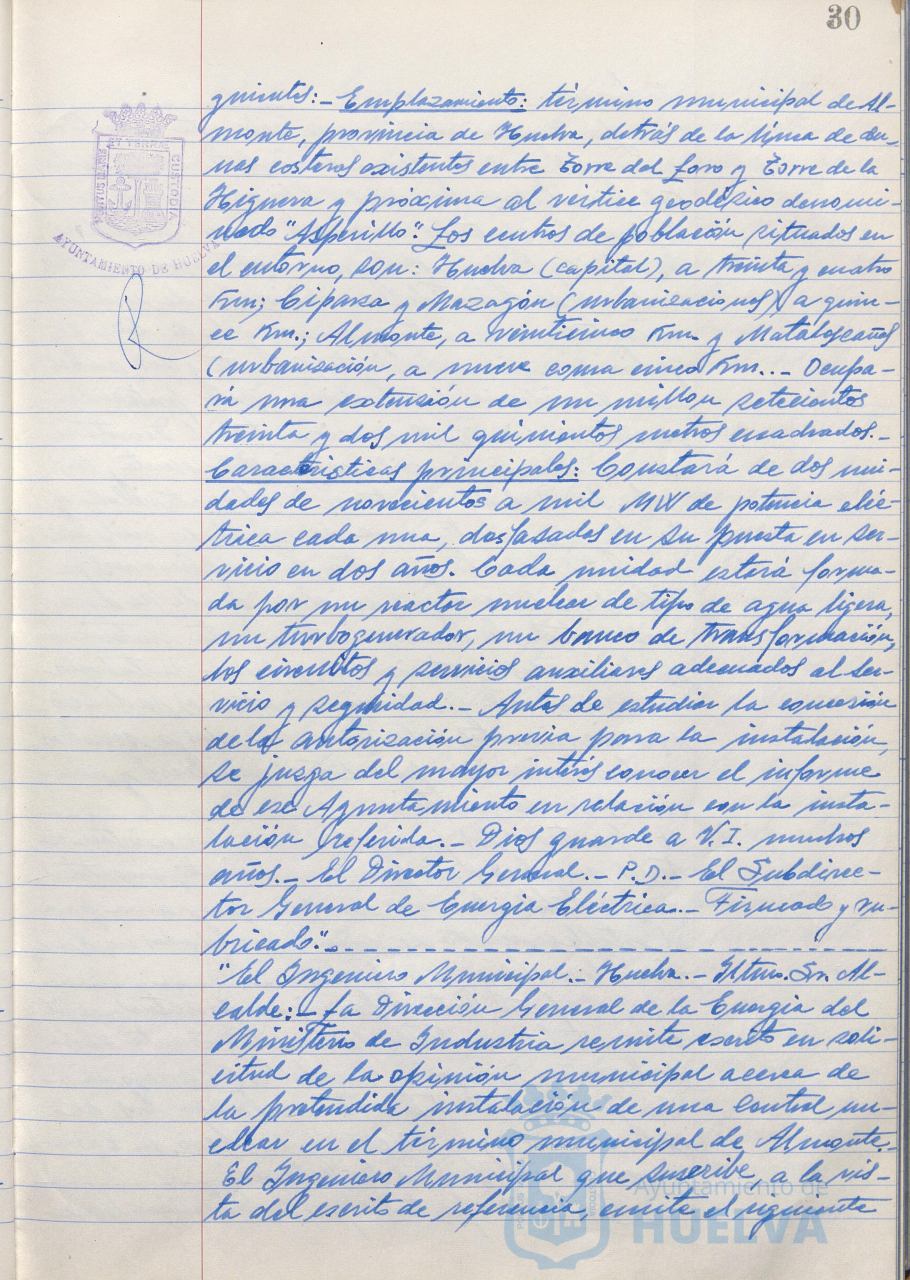 30
guientes:- Emplazamiento: término municipal de Al-
monte, provincia de Huelva, detrás de la línea de du-
nas costeras existentes entre Torre del Loro y Torre de la
Higuera y próxima al vértice geodésico denomi-
nado "Asperillo". Los centros de población situados en
el entorno, son: Huelva (capital), a treinta y cuatro
Km; Ciparsa y Mazagón (urbanizaciones) a quin-
ce Km.; Almonte, a veinticinco Km. y Matalascañas
(urbanización, a nueve coma cinco Km..- Ocupa-
rá una extensión de un millon setecientos
treinta y dos mil quinientos metros cuadrados.-
Características principales: Constará de dos uni-
dades de novecientos a mil MW de potencia eléc-
trica cada una, desfasadas en su puesta en ser-
vicio en dos años. Cada unidad estará forma-
da por un reactor nuclear de tipo de agua ligera,
un turbogenerador, un banco de transformación,
los circuitos y servicios auxiliares adecuados al ser-
vicio y seguridad.- Antes de estudiar la concesión
de la autorización previa para la instalación,
se juzga del mayor interés conocer el informe
de ese Ayuntamiento en relación con la insta-
lación referida.- Dios guarde a V.I. muchos
años.- El Director General.- P.D.- El Subdirec-
tor General de Energía Eléctrica.- Firmado y ru-
bricado".-
"El Ingeniero Municipal.- Huelva.- Iltmo. Sr. Al-
calde:- La Dirección General de la Energía del
Ministerio de Industria remite escrito en soli-
citud de la opinión municipal acerca de
la pretendida instalación de una Central nu-
clear en el término municipal de Almonte.-
El Ingeniero Municipal que suscribe, a la vis-
ta del escrito de referencia, emite el siguiente
AYUNTAMIENTO DE HUELVA
Ayuntamiento de
HUELVA